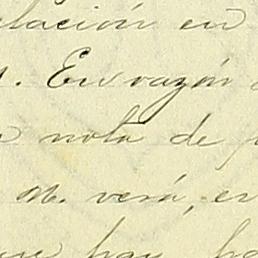 lación en
. En razón
nota de
M. verá, en
hay